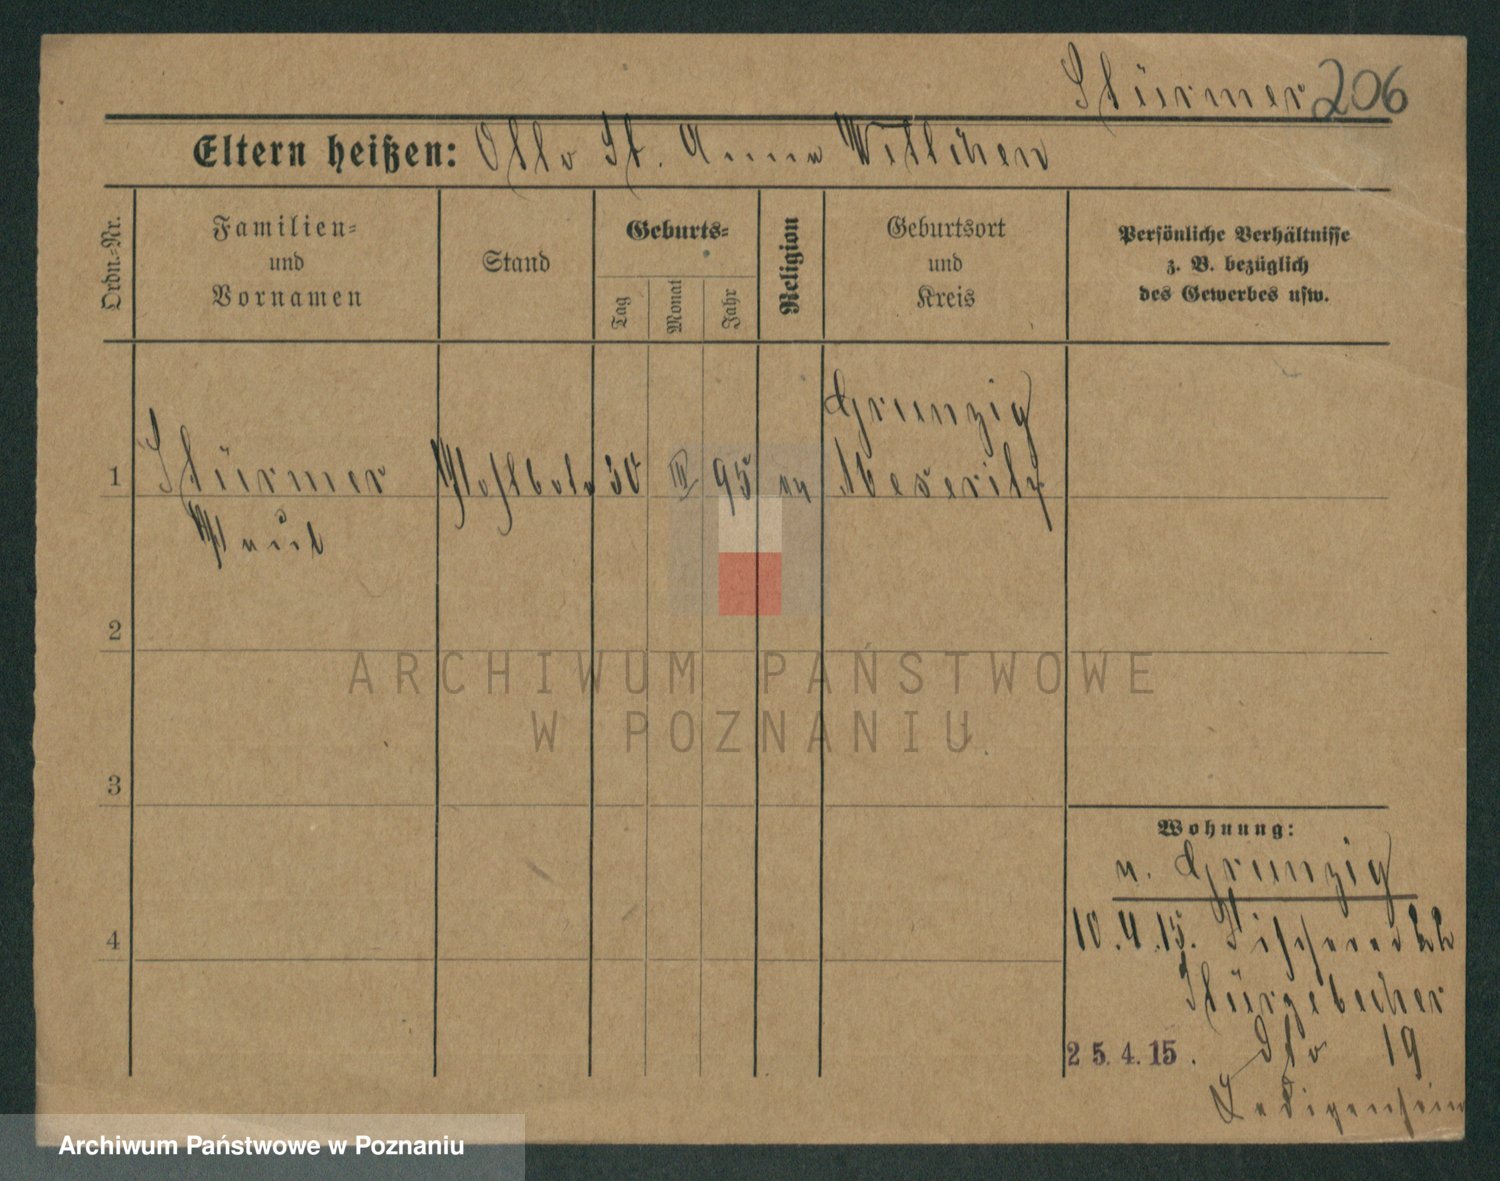 Stürmer 206
Eltern heißen: Otto St. Anna Wittchen
Ordn.-Nr.
Familien-
und
Vornamen
Stand
Geburts-
Tag
Monat
Jahr
Religion
Geburtsort
und
Kreis
Persönliche Verhältnisse
z. B. bezüglich
des Gewerbes usw.
Grunzig
1 Stürmer Postbote 30 III 95 ev Meseritz
Paul
2
ARCHIWUM PAŃSTWOWE
W POZNANIU
3
Wohnung:
v. Grunzig
4
10.4.15. 22
Stürzebecher
25.4.15. dto 19
Ledigenheim
Archiwum Państwowe w Poznaniu